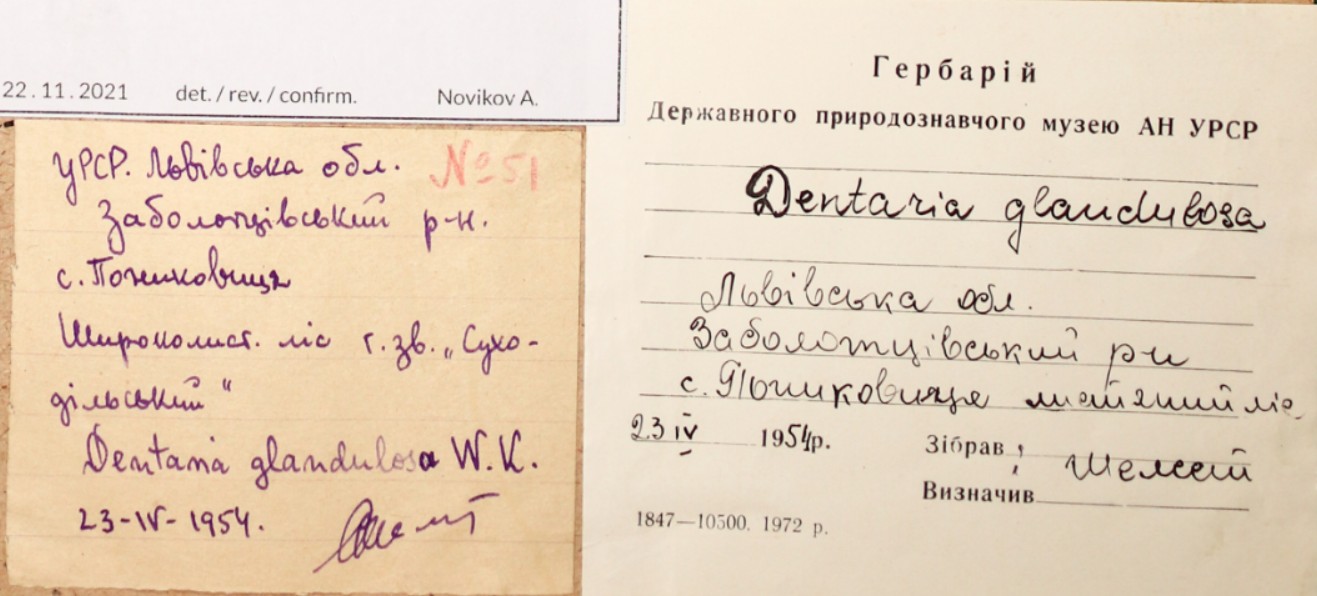 22.11.2021 det./rev./confirm. Novikov A.
УРСР. Львівська обл. №51
Заболотцівський р-н.
с. Пониковиця
Широколист. ліс т. зв. „Сухо-
дільський“
Dentaria glandulosa W. K.
23-IV-1954.
Гербарій
Державного природознавчого музею АН УРСР
Dentaria glandulosa
Львівська обл.
Заболотцівський р-н
с. Пониковиця листяний ліс
23 IV 1954р. Зібрав
Визначив
1847—10500. 1972 р.